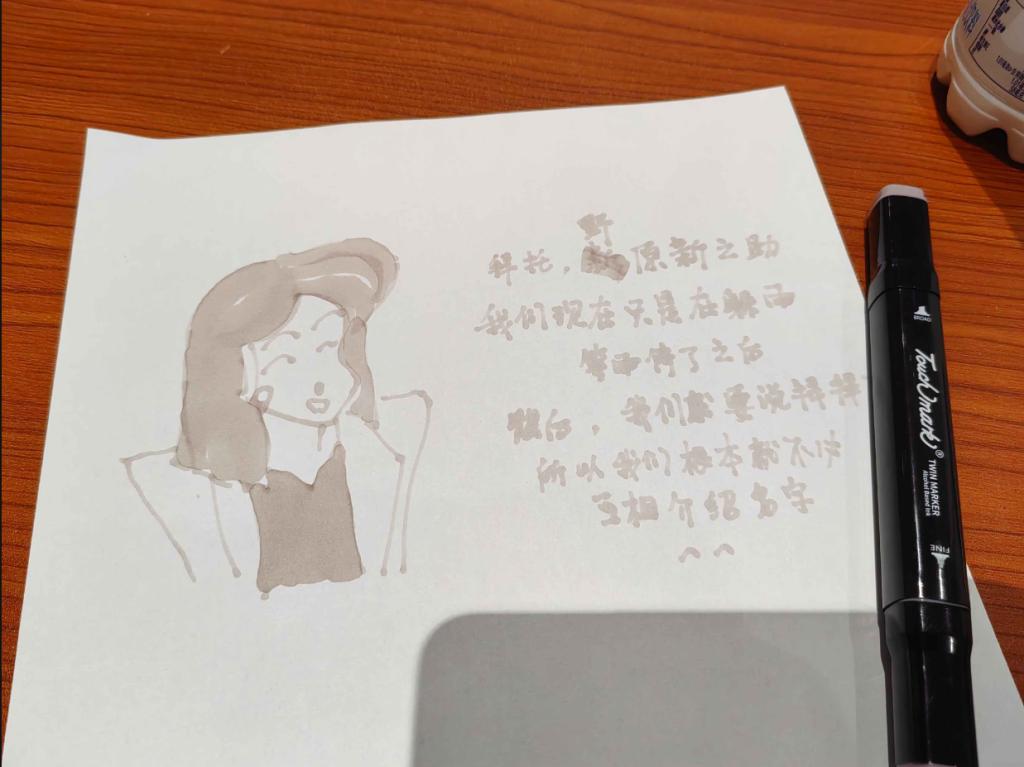 野
拜托，原新之助
我们现在只是在躲雨
等雨停了之后
随后，我们就要说拜拜
所以我们根本就不
互相介绍名字
^ ^
BROAD
Touchmark®
TWIN MARKER
Alcohol Based Ink
FINE